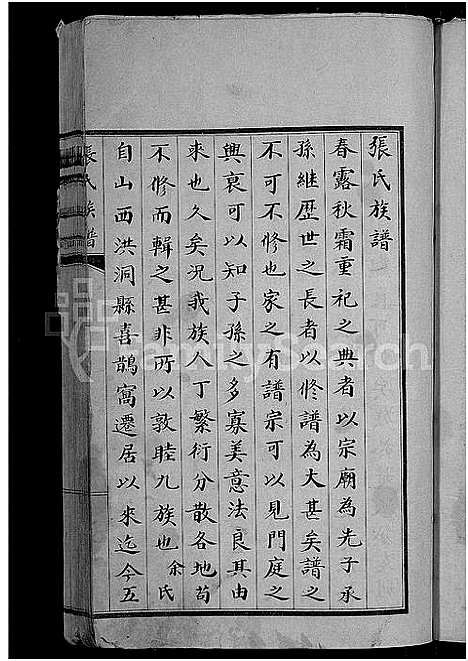 張氏族譜
春露秋霜重祀之典者以宗廟為先子承
孫繼歷世之長者以修譜為大甚矣譜之
不可不修也家之有譜宗可以見門庭之
興衰可以知子孫之多寡美意法良其由
來也久矣況我族人丁繁衍分散各地苟
不修而輯之甚非所以敦睦九族也余氏
自山西洪洞縣喜鵲窩遷居以來迄今五
張氏族譜
FamilySearch